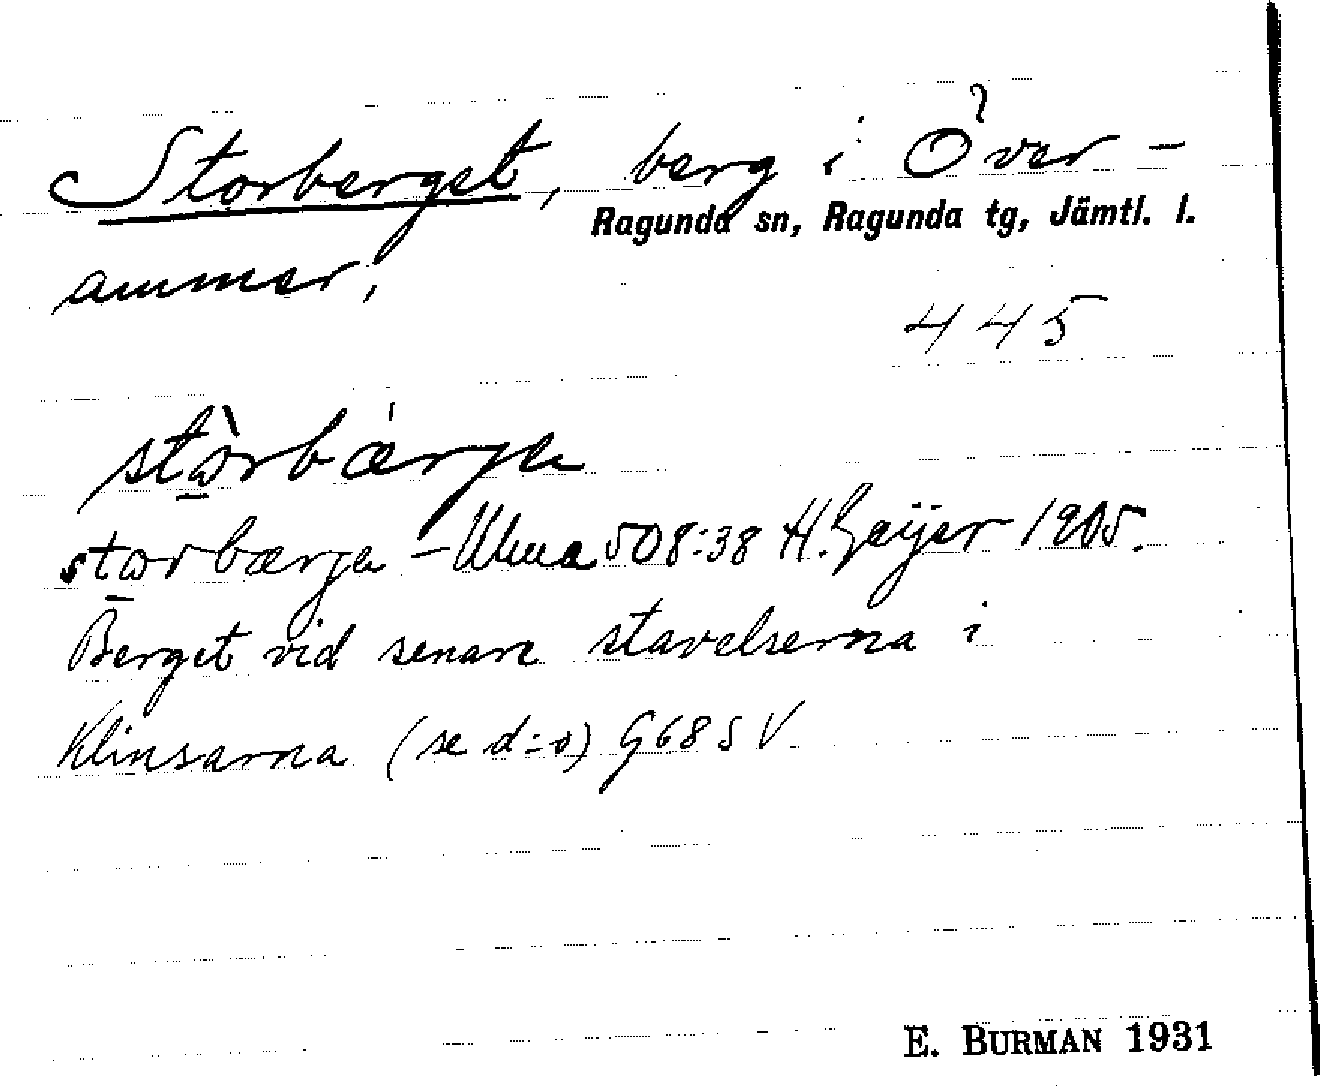 Storberget, berg i Över-
Ragunda sn, Ragunda tg, Jämtl. l.
ammer,
445
stòrbǽrja
storbærja – Ulma 508:38 H. Geijer 1905.
Berget vid senare stavelserna i
Klinsarna (se d:o) G68 S V
E. BURMAN 1931